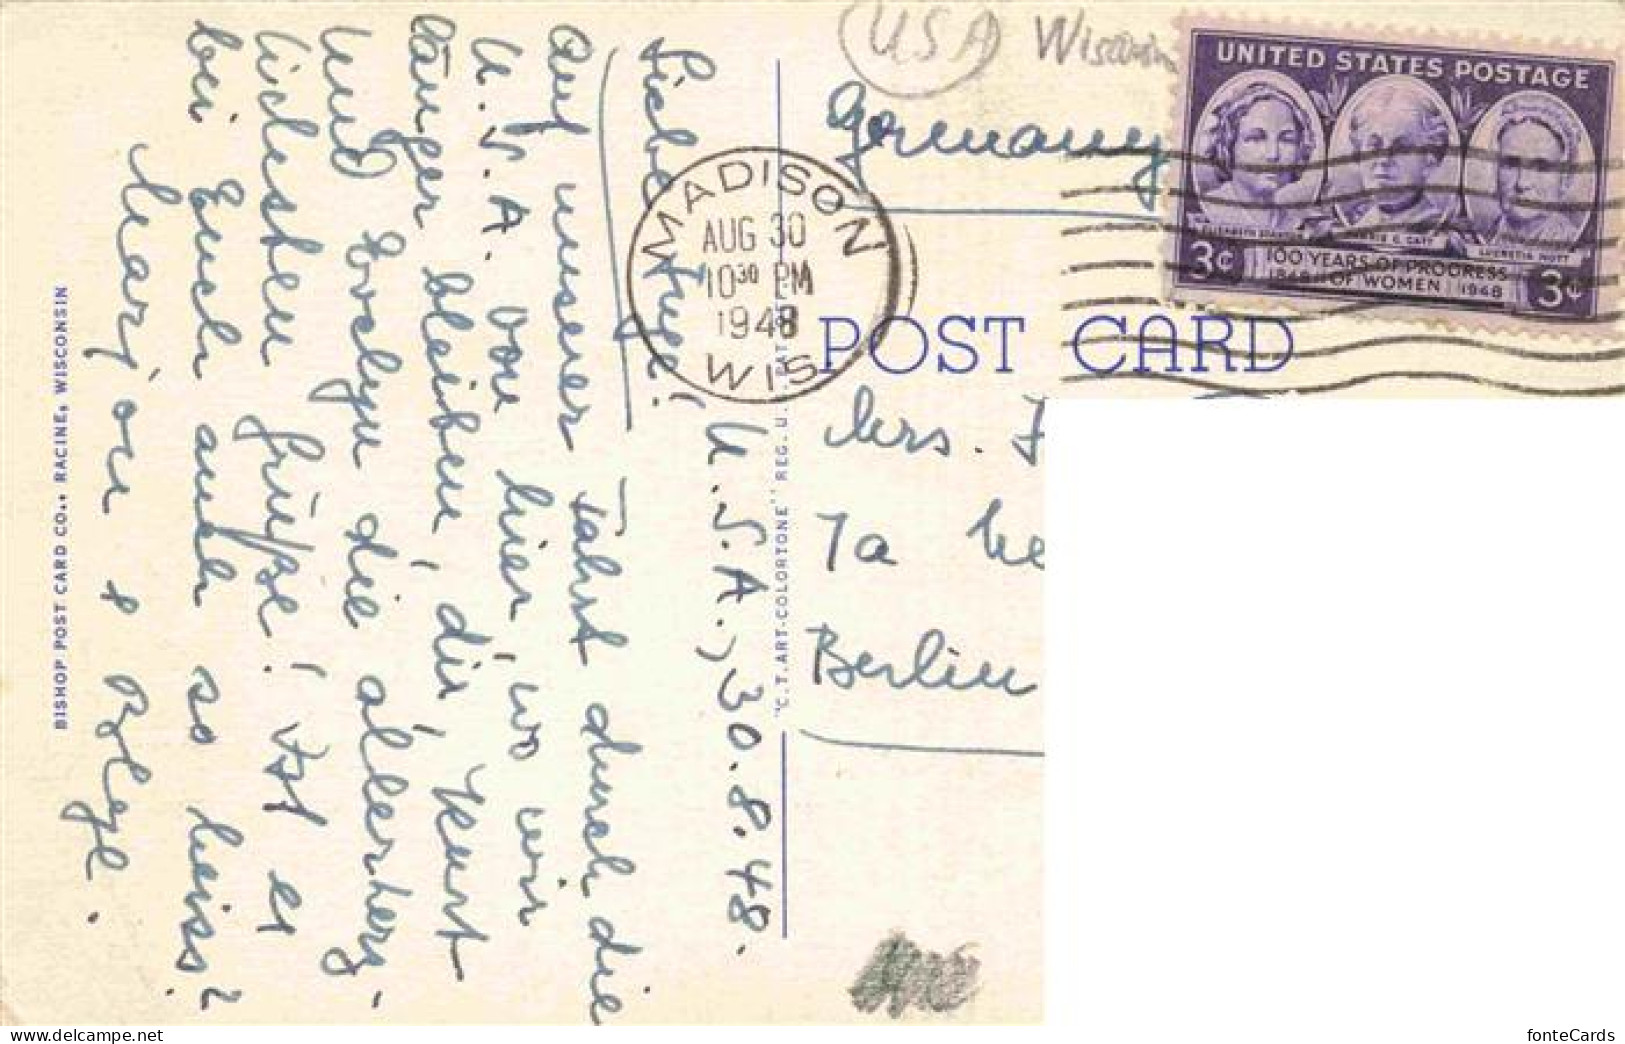 USA Wisconsin
UNITED STATES POSTAGE
ELIZABETH STANTON
CARRIE C. CATT
LUCRETIA MOTT
3¢ 100 YEARS OF PROGRESS
1848 OF WOMEN 1948 3¢
MADISON
AUG 30
10 30 PM
1948
WIS.
POST CARD
Germany
Mrs.
7a
Berlin
U.S.A., 30.8.48.
Liebe Inge!
Auf unserer Fahrt durch die
U.S.A. von hier, wo wir
länger bleiben, dir, Kurt
und Evelyn die allerherz-
lichsten Grüße! Ist es
bei Euch auch so heiss?
Marjon & Bolge.
"C.T. ART-COLORTONE" REG. U.S. PAT. OFF.
BISHOP POST CARD CO., RACINE, WISCONSIN
www.delcampe.net
fonteCards